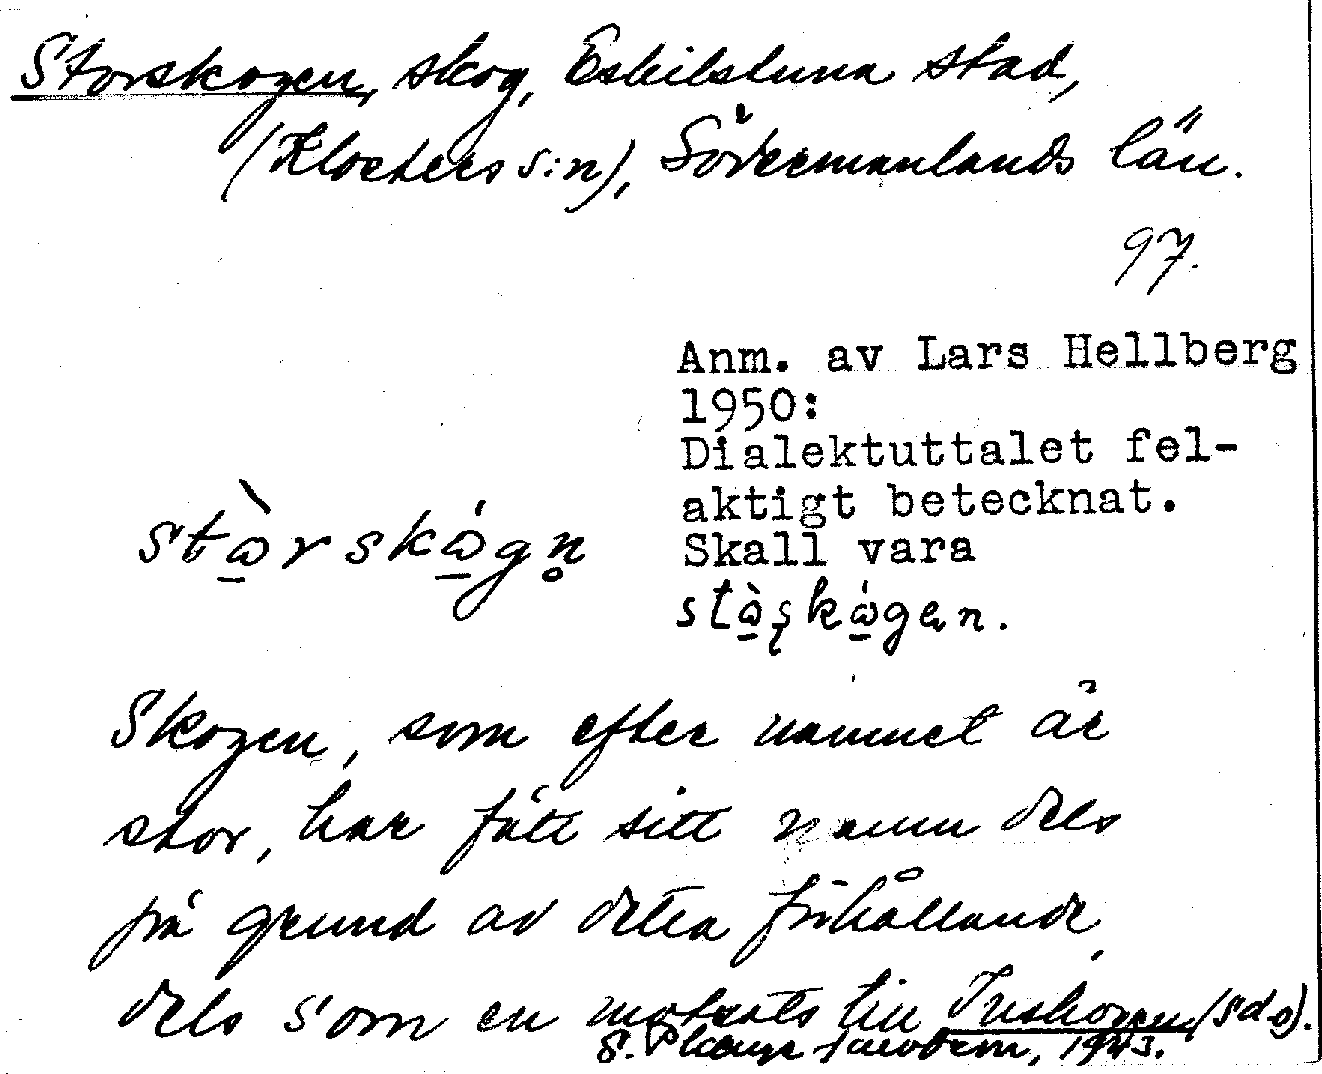 Storskogen, skog, Eskilstuna stad,
(Klosters s:n), Södermanlands län.
97.
Anm. av Lars Hellberg
1950:
Dialektuttalet fel-
aktigt betecknat.
Skall vara
Skogen, som efter namnet är
stor, har fått sitt namn dels
på grund av detta förhållande,
dels som en motsats till (s d o).
1943.